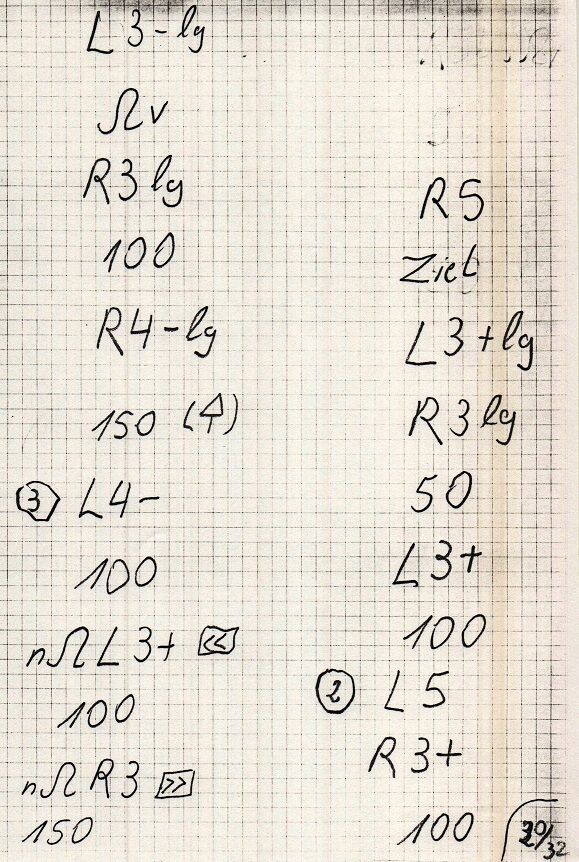 L3-lg
Ωv
R3lg
100
R4-lg
150 (4)
3 L4-
100
nΩL3+ <<
100
nΩR3 >>
150
R5
Ziel
L3+lg
R3lg
50
L3+
100
2 L5
R3+
100